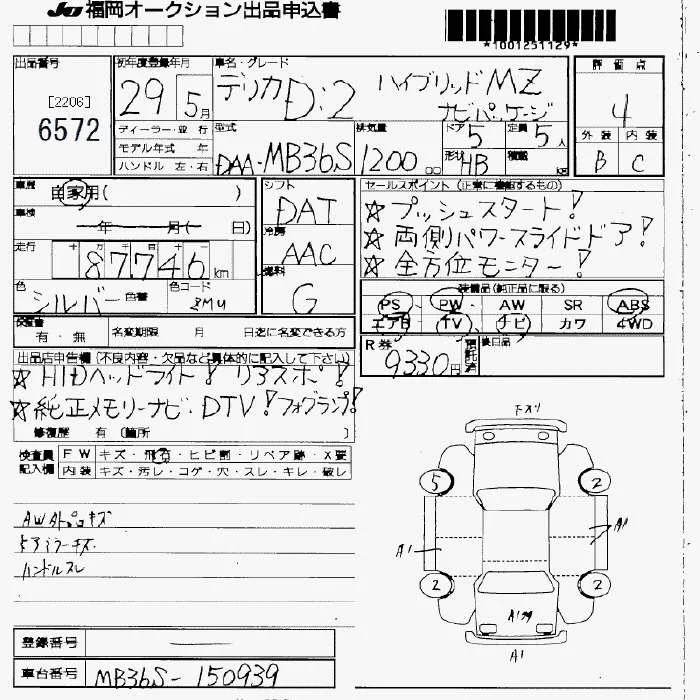 JU 福岡オークション出品申込書
*1001251129*
出品番号 初年度登録年月 車名・グレード 評価点
[2206]
6572
29 5月
デリカD:2 ハイブリッドMZ
ナビパッケージ
4
ディーラー・並行 型式 排気量 ドア 5 定員 5人 外装 内装
モデル年式 年
ハンドル 左・右 DAA-MB36S 1200 cc 形状 HB 積載 kg B C
車歴 自家用( ) シフト セールスポイント (正常に機能するもの)
DAT ☆プッシュスタート!
車検 年 月( 日) 冷房 ☆両側パワースライドドア!
走行 十 万 千 百 十 一 AAC ☆全方位モニター!
87,746 km 燃料
色 シルバー 色替 色コード G
装備品(純正品に限る)
PS・PW・AW SR ABS
エアB TV ナビ カワ 4WD
検査書 有・無 名変期限 月 日迄に名変できる方
R券 9330円 預託済 後日品
出品店申告欄 (不良内容・欠品など具体的に記入して下さい)
☆HIDヘッドライト! リアスポ!
☆純正メモリーナビ・DTV! フォグランプ!
修復歴 有 (箇所 )
検査員 FW キズ・飛石・ヒビ割・リペア跡・X要
記入欄 内装 キズ・汚レ・コゲ・穴・スレ・キレ・破レ
5 2
A1 A1
2 2
A1
ハンドルスレ
登録番号
車台番号 MB36S-150939